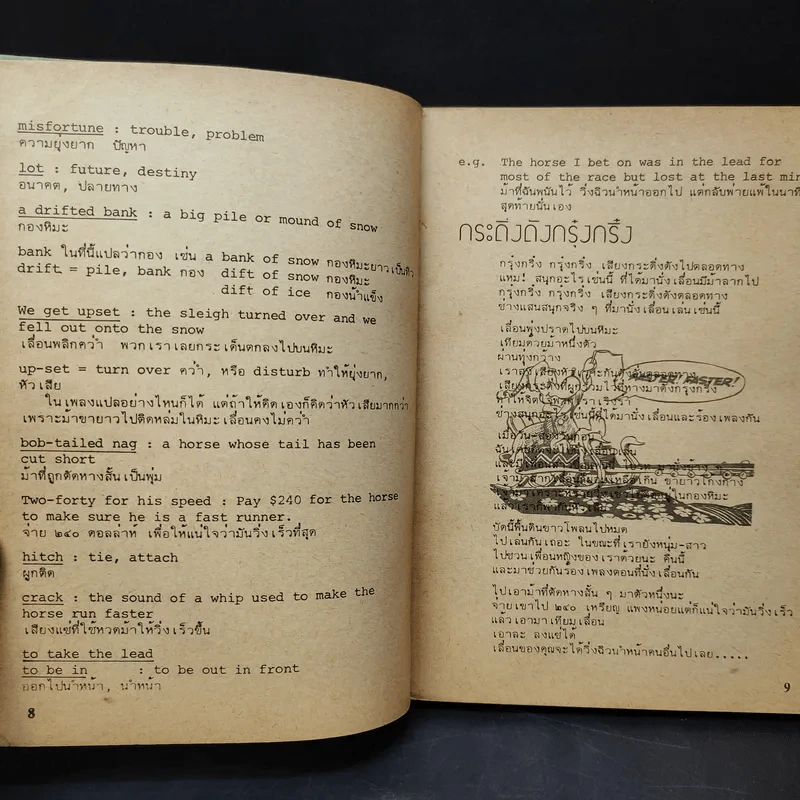 misfortune : trouble, problem
ความยุ่งยาก ปัญหา
lot : future, destiny
อนาคต, ปลายทาง
a drifted bank : a big pile or mound of snow
กองหิมะ
bank ในที่นี้แปลว่ากอง เช่น a bank of snow กองหิมะยาวเป็นคิว
drift = pile, bank กอง dift of snow กองหิมะ
dift of ice กองน้ำแข็ง
We get upset : the sleigh turned over and we
fell out onto the snow
เลื่อนพลิกคว่ำ พวกเราเลยกระเด็นตกลงไปบนหิมะ
up-set = turn over คว่ำ, หรือ disturb ทำให้ยุ่งยาก,
หัวเสีย
ในเพลงแปลอย่างไหนก็ได้ แต่ถ้าให้คิดเองก็คิดว่าหัวเสียมากกว่า
เพราะม้าขายาวไปติดหล่มในหิมะ เลื่อนคงไม่คว่ำ
bob-tailed nag : a horse whose tail has been
cut short
ม้าที่ถูกตัดหางสั้นเป็นพุ่ม
Two-forty for his speed : Pay $240 for the horse
to make sure he is a fast runner.
จ่าย ๒๔๐ ดอลล่าห์ เพื่อให้แน่ใจว่ามันวิ่งเร็วที่สุด
hitch : tie, attach
ผูกติด
crack : the sound of a whip used to make the
horse run faster
เสียงแซ่ที่ใช้หวดม้าให้วิ่งเร็วขึ้น
to take the lead
to be in : to be out in front
ออกไปนำหน้า, นำหน้า
8
e.g. The horse I bet on was in the lead for
most of the race but lost at the last min
ม้าที่ฉันพนันไว้ วิ่งฉิวนำหน้าออกไป แต่กลับพ่ายแพ้ในนาที
สุดท้ายนั่นเอง
กระดิ่งดังกรุ๋งกริ๋ง
กรุ๋งกริ๋ง กรุ๋งกริ๋ง เสียงกระดิ่งดังไปตลอดทาง
แหม! สนุกอะไรเช่นนี้ ที่ได้มานั่งเลื่อนมีม้าลากไป
กรุ๋งกริ๋ง กรุ๋งกริ๋ง เสียงกระดิ่งดังตลอดทาง
ช่างแสนสนุกจริง ๆ ที่มานั่งเลื่อนเล่นเช่นนี้
เลื่อนพุ่งปราดไปบนหิมะ
เทียมด้วยม้าหนึ่งตัว
ผ่านทุ่งกว้าง
FASTER! FASTER!
บัดนี้พื้นดินขาวโพลนไปหมด
ไปเล่นกันเถอะ ในขณะที่เรายังหนุ่ม-สาว
ไปชวนเพื่อนหญิงของเราด้วยนะ คืนนี้
และมาช่วยกันร้องเพลงตอนที่นั่งเลื่อนกัน
ไปเอาม้าที่ตัดหางสั้น ๆ มาตัวหนึ่งนะ
จ่ายเขาไป ๒๔๐ เหรียญ แพงหน่อยแต่ก็แน่ใจว่ามันวิ่งเร็ว
แล้วเอามาเทียมเลื่อน
เอาละ ลงแซ่ได้
เลื่อนของคุณจะได้วิ่งฉิวนำหน้าคนอื่นไปเลย.....
9